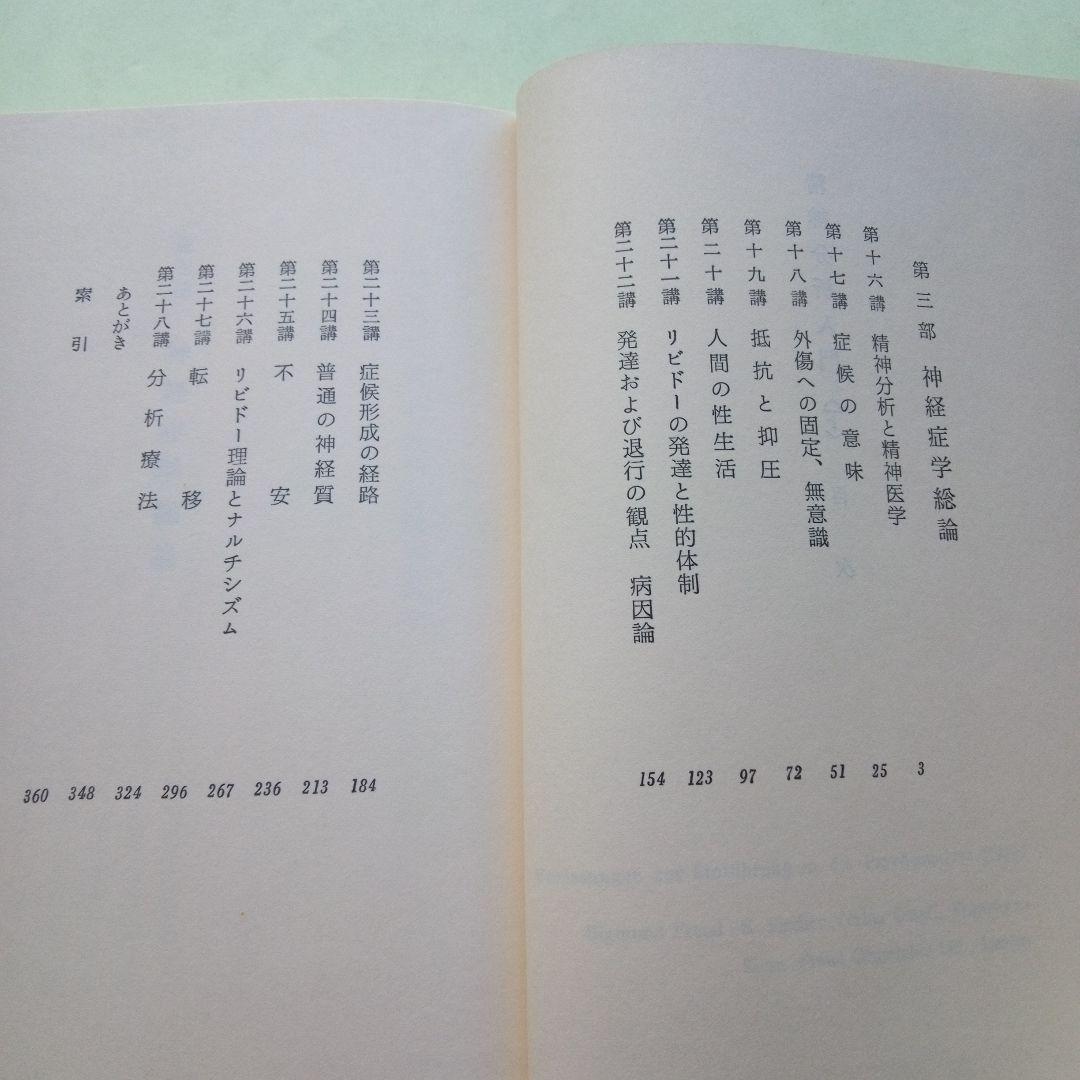 第三部 神経症学総論
第十六講 精神分析と精神医学 3
第十七講 症候の意味 25
第十八講 外傷への固定、無意識 51
第十九講 抵抗と抑圧 72
第二十講 人間の性生活 97
第二十一講 リビドーの発達と性的体制 123
第二十二講 発達および退行の観点 病因論 154
第二十三講 症候形成の経路 184
第二十四講 普通の神経質 213
第二十五講 不安 236
第二十六講 リビドー理論とナルチシズム 267
第二十七講 転移 296
第二十八講 分析療法 324
あとがき 348
索引 360